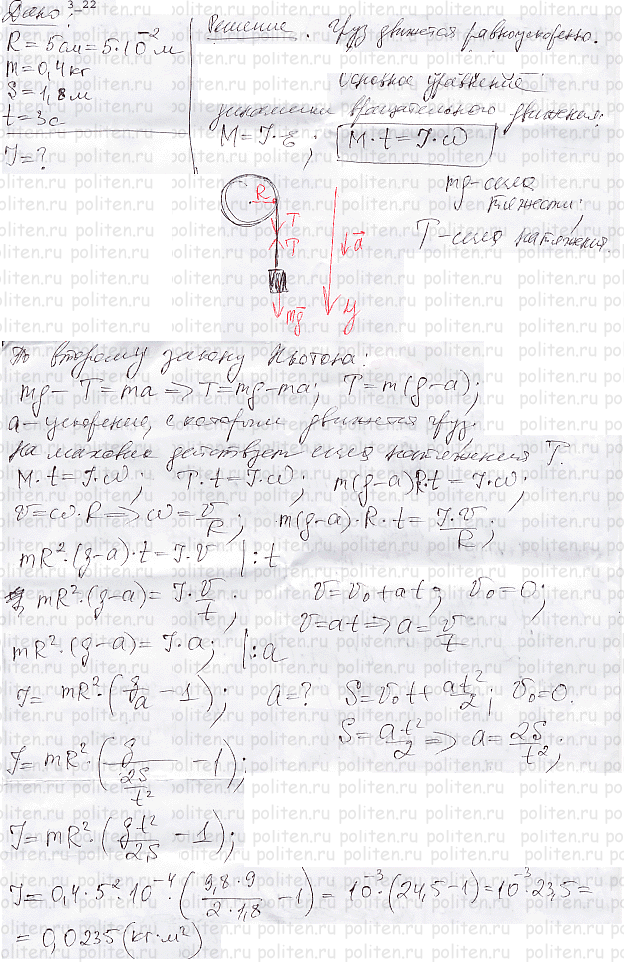 Дано: 3-22
R = 5 см = 5·10⁻² м
m = 0,4 кг
S = 1,8 м
t = 3 с
J = ?
Решение. Груз движется равноускоренно.
Основное уравнение
динамики вращательного движения:
M = J·ε; M·t = J·ω
mg – сила
тяжести;
T – сила натяжения.
R
T
T
a
mg
y
По второму закону Ньютона:
mg – T = ma => T = mg – ma; T = m(g–a);
a – ускорение, с которым движется груз.
На маховик действует сила натяжения T.
M·t = J·ω; T·t = J·ω; m(g–a)R·t = J·ω;
v = ω·R => ω = v/R; m(g–a)·R·t = J·v/R;
mR²·(g–a)·t = J·v |:t
mR²·(g–a) = J·v/t; v = v₀ + at; v₀ = 0;
v = at => a = v/t
mR²·(g–a) = J·a; |:a
J = mR²·(g/a – 1); a = ? S = v₀t + at²/2; v₀ = 0.
S = at²/2 => a = 2S/t²;
J = mR²·(g/(2S/t²) – 1);
J = mR²·(gt²/2S – 1);
J = 0,4·5²·10⁻⁴·(9,8·9/2·1,8 – 1) = 10⁻³·(24,5–1) = 10⁻³·23,5 =
= 0,0235 (кг·м²)
politen.ru